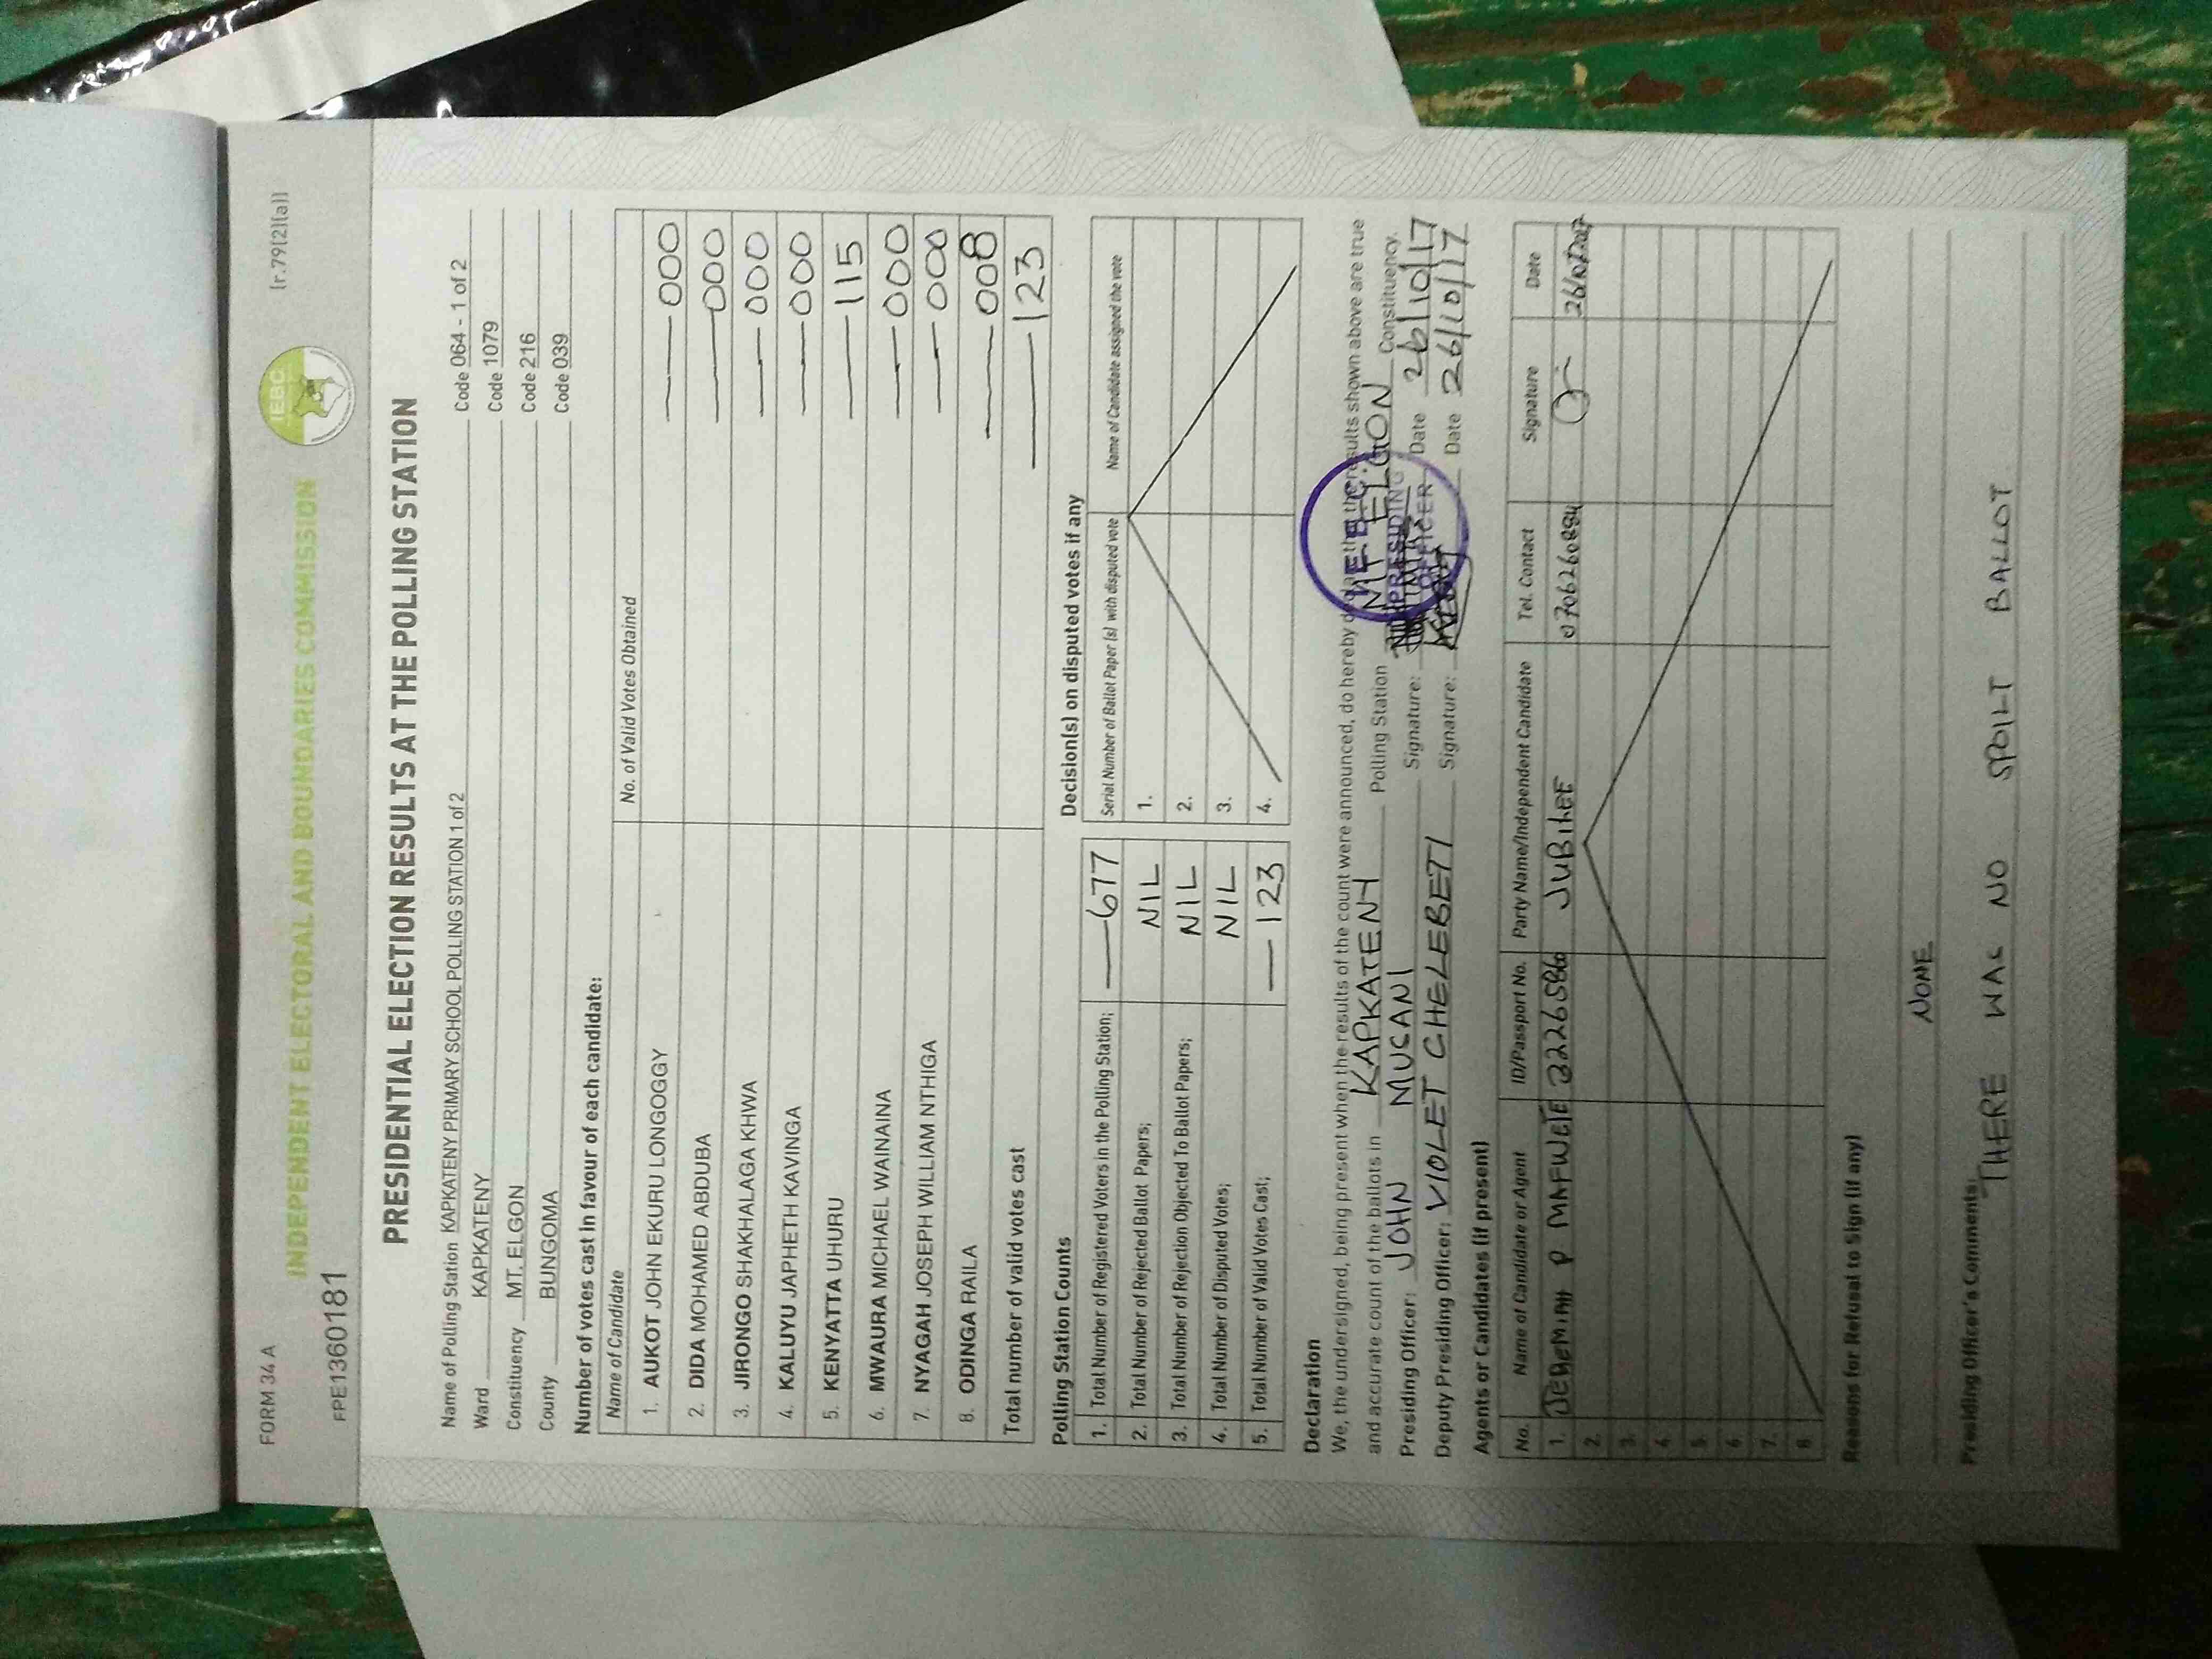 FORM 34 A
(r.79(2)(a))
INDEPENDENT ELECTORAL AND BOUNDARIES COMMISSION
IEBC
FPE1360181
PRESIDENTIAL ELECTION RESULTS AT THE POLLING STATION
Name of Polling Station KAPKATENY PRIMARY SCHOOL POLLING STATION 1 of 2 Code 064 - 1 of 2
Ward KAPKATENY Code 1079
Constituency MT. ELGON Code 216
County BUNGOMA Code 039
Number of votes cast in favour of each candidate:
Name of Candidate No. of Valid Votes Obtained
1. AUKOT JOHN EKURU LONGOGGY — 000
2. DIDA MOHAMED ABDUBA — 000
3. JIRONGO SHAKHALAGA KHWA — 000
4. KALUYU JAPHETH KAVINGA — 000
5. KENYATTA UHURU — 115
6. MWAURA MICHAEL WAINAINA — 000
7. NYAGAH JOSEPH WILLIAM NTHIGA — 000
8. ODINGA RAILA — 008
Total number of valid votes cast — 123
Polling Station Counts
1. Total Number of Registered Voters in the Polling Station; — 677
2. Total Number of Rejected Ballot Papers; NIL
3. Total Number of Rejection Objected To Ballot Papers; NIL
4. Total Number of Disputed Votes; NIL
5. Total Number of Valid Votes Cast; — 123
Decision(s) on disputed votes if any
Serial Number of Ballot Paper (s) with disputed vote Name of Candidate assigned the vote
1.
2.
3.
4.
Declaration
We, the undersigned, being present when the results of the count were announced, do hereby declare that the results shown above are true
and accurate count of the ballots in KAPKATENY Polling Station MT ELGON Constituency.
Presiding Officer: JOHN MUSANI Signature: Date 26/10/17
Deputy Presiding Officer: VIOLET CHELEBETI Signature: Date 26/10/17
PRESIDING OFFICER
Agents or Candidates (if present)
No. Name of Candidate or Agent ID/Passport No. Party Name/Independent Candidate Tel. Contact Signature Date
1. JEREMIAH P JUBILEE 26/10/2017
2.
3.
4.
5.
6.
7.
8.
Reasons for Refusal to Sign (if any)
NONE
Presiding Officer's Comments:
THERE WAS NO SPOILT BALLOT